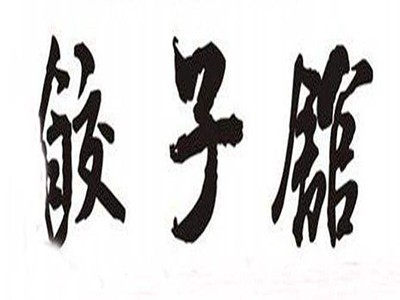 餃子館